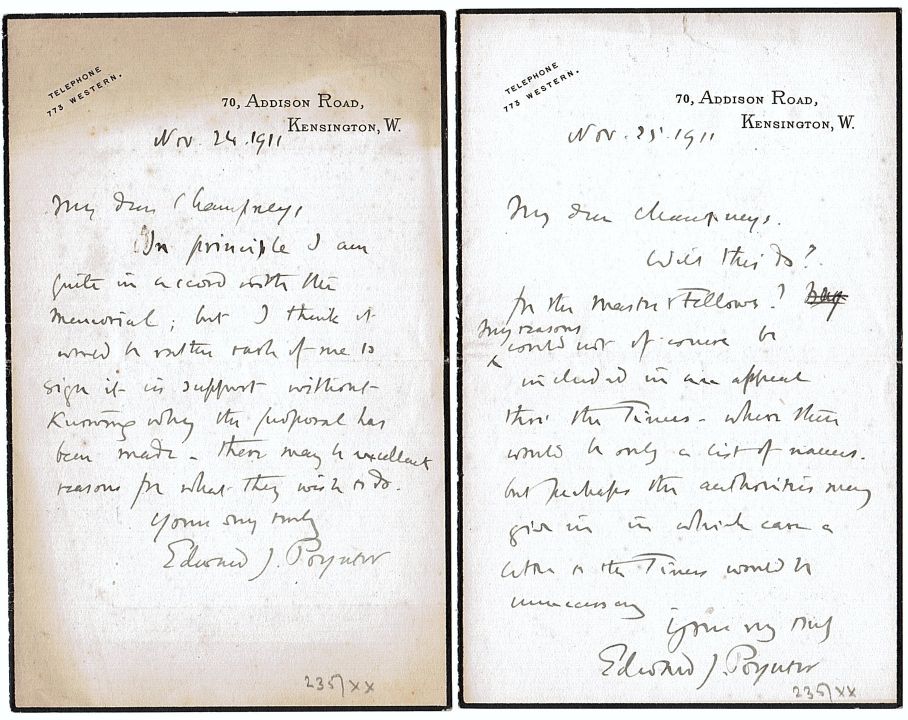 TELEPHONE
773 WESTERN.
70, ADDISON ROAD,
KENSINGTON, W.
Nov. 24. 1911
My dear Champneys,
In principle I am
quite in accord with the
Memorial; but I think it
would be rather rash of me to
sign it in support without
Knowing why the proposal has
been made - there may be excellent
reasons for what they wish to do.
Yours very truly
Edward J. Poynter
235/xx
TELEPHONE
773 WESTERN.
70, ADDISON ROAD,
KENSINGTON, W.
Nov. 25. 1911
My dear Champneys.
Will this do?
for the Master & Fellows?
My reasons
could not of course be
included in an appeal
thro' the Times - where there
would be only a list of names.
but perhaps the authorities may
give in in which case a
letter to the Times would be
unnecessary
Yours very truly
Edward J. Poynter
235/xx